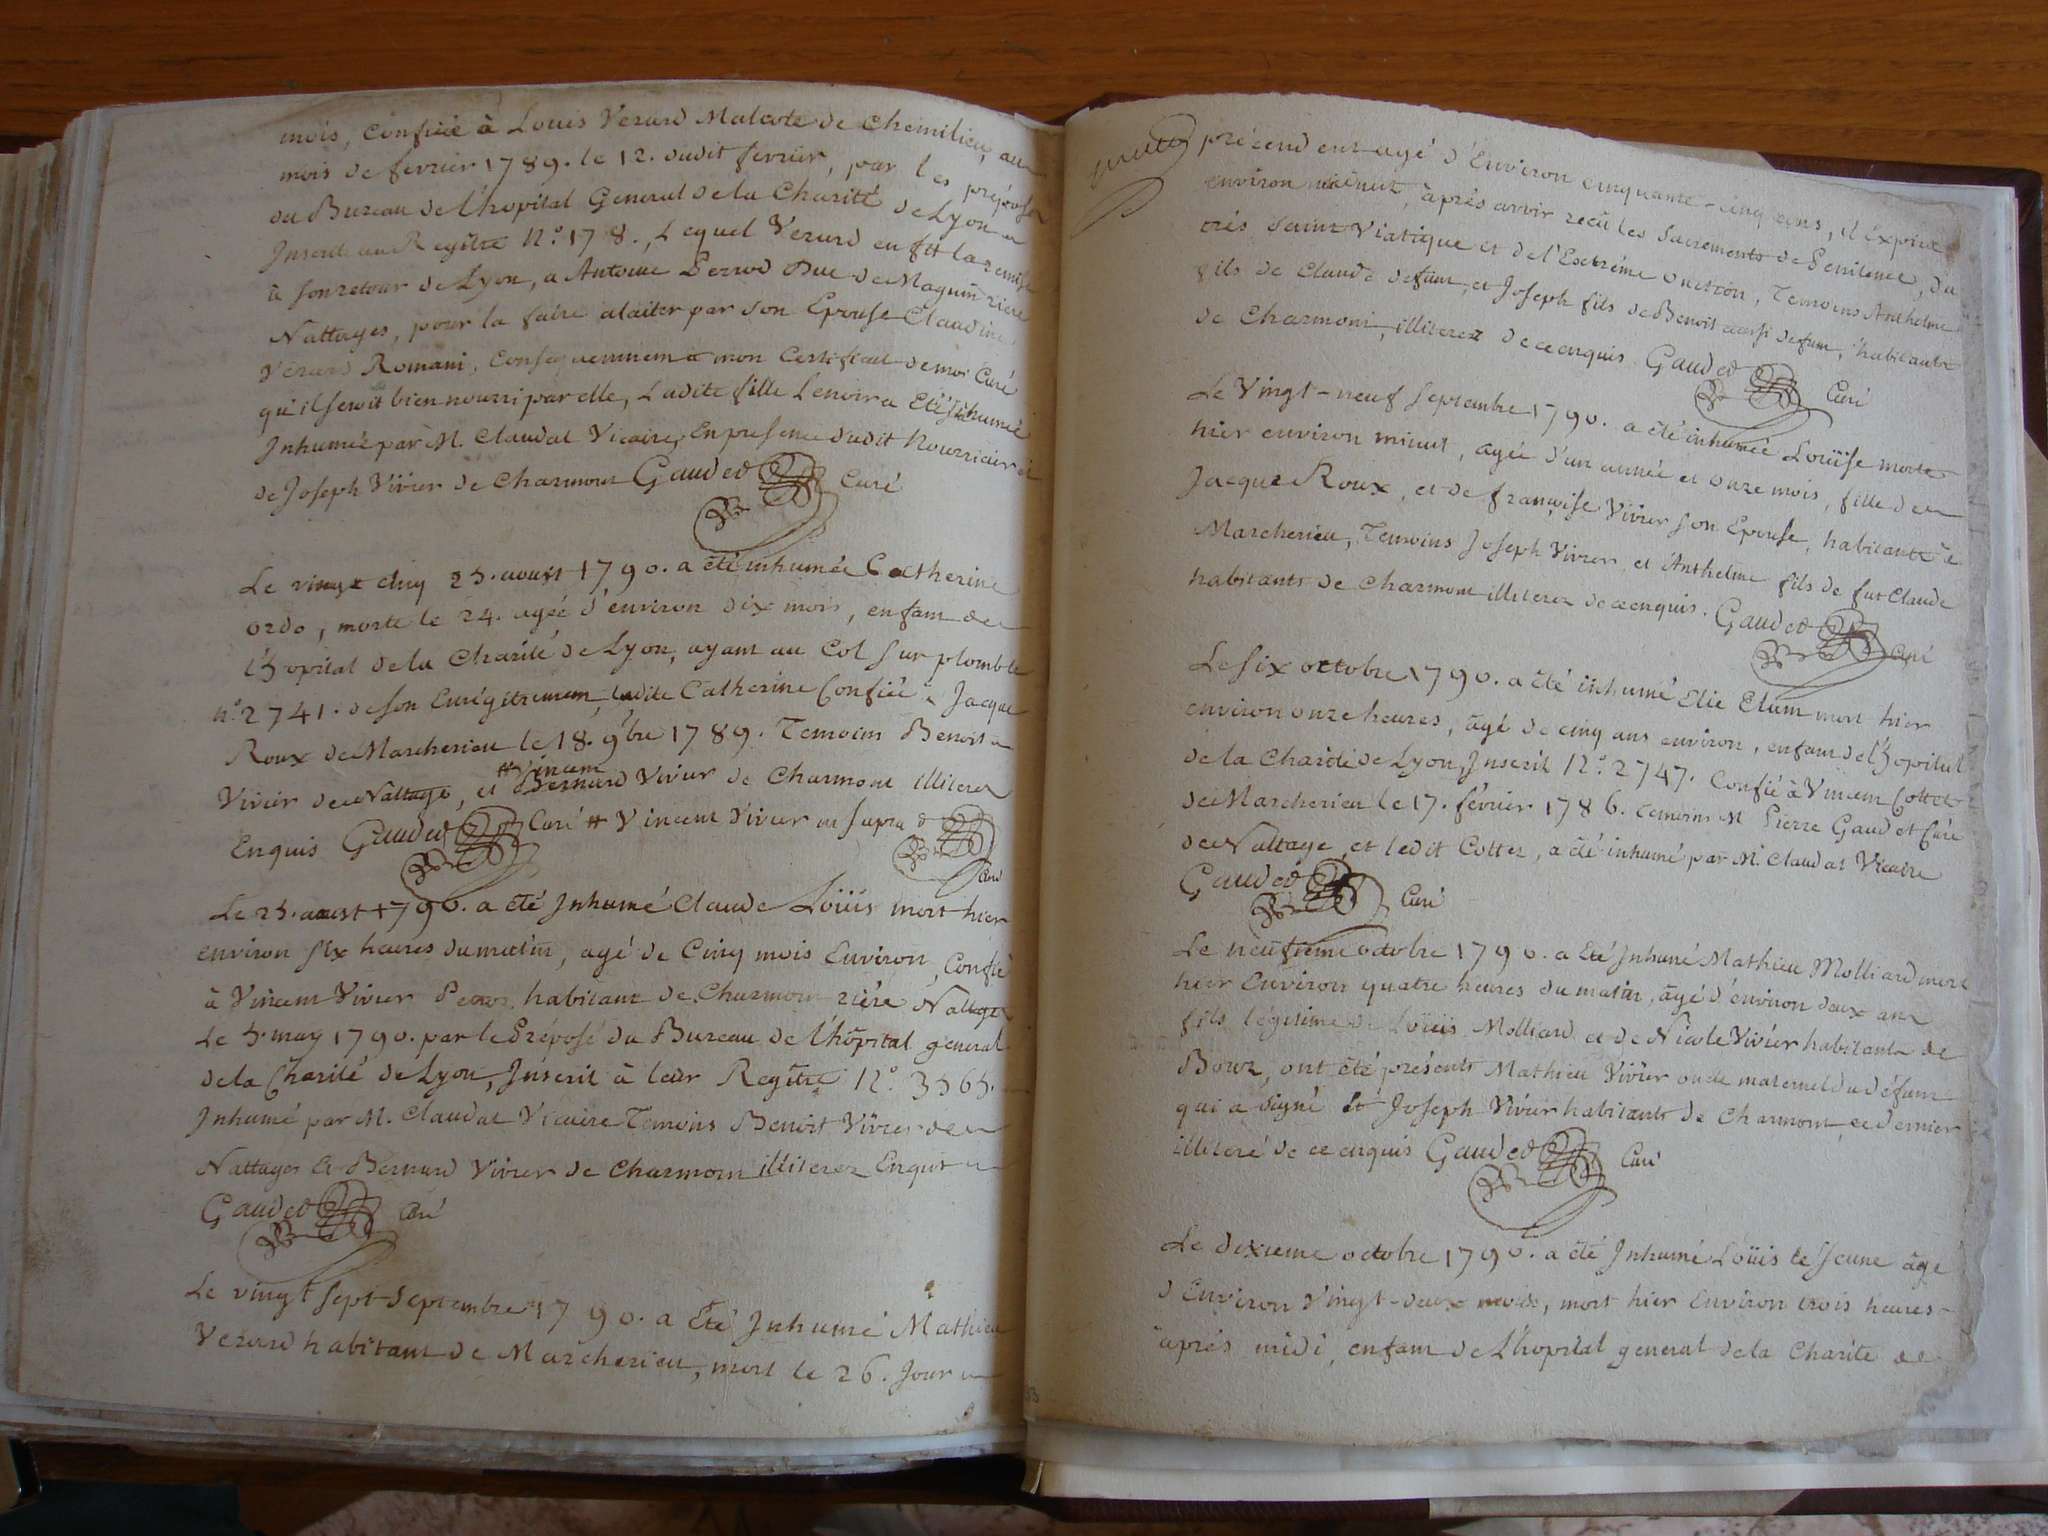 mois, confiée à Louis Verard Malcote de Chemilieu, au
mois de fevrier 1789. le 12. dudit fevrier, par les préposés
du Bureau de l'hopital General de la Charité de Lyon
Inscrite au Registre N.° 178., Lequel Verard en fit la remise
à son retour de Lyon, a Antoine Perrod Duc de Magnin riere
Nattages, pour la faire alaiter par son Epouse Claudine
Verard Romani, Consequemment a mon Certificat de moi Curé
qu'il seroit bien nourri par elle, Ladite fille Lenoir a Eté Inhumée
Inhumée par M. Claudat Vicaire, En presence dudit Nourricier et
de Joseph Vivier de Charmont Gauded Curé
Le vingt cinq 25. aoust 1790. a été inhumée Catherine
Ordo, morte le 24. agée d'environ dix mois, enfant de
l'hopital de la Charité de Lyon, ayant au Col sur plomb le
n.° 2741. de son Enrégitrement, ladite Catherine Confiée a Jacque
Roux de Marcherieu le 18. 9bre 1789. Temoins Benoit
Vivier de Nattage, et Bernard Vivier de Charmont illiterez
# Vincent
Enquis Gauded Curé # Vincent Vivier ut supra
Curé
Le 25. aoust 1790. a été Inhumé Claude Loüis mort hier
environ six heures du matin, agé de Cinq mois Environ, Confié
à Vincent Vivier habitant de Charmont riére Nattages
Le 5. may 1790. par le Préposé du Bureau de l'hôpital general
de la Charité de Lyon, Inscrit à leur Regître N.° 3565.
Inhumé par M. Claudat Vicaire Temoins Benoit Vivier de
Nattages Et Bernard Vivier de Charmont illiterez Enquis
Gauded Curé
Le vingt sept Septembre 1790. a Eté Inhumé Mathieu
Verard habitant de Marcherieu, mort le 26. Jour
précend ent agé d'Environ cinquante-cinq ans, il expira
environ minuit, après avoir reçû les Sacrements de Penitence, du
trés Saint Viatique et de l'Extréme onction, Temoins Anthelme
fils de Claude defunt, et Joseph fils de Benoit aussi defunt, habitants
de Charmont, illiterez de ce enquis. Gauded Curé
Le Vingt-neuf Septembre 1790. a été inhumée Loüise morte
hier environ minuit, agée d'un année et onze mois, fille de
Jacque Roux, et de françoise Vivier son Epouse, habitants a
Marcherieu, Temoins Joseph Vivier, et Anthelme fils de fut Claude
habitants de Charmont illiterez de ce enquis. Gauded
Curé
Le Six octobre 1790. a été inhumé Elie Elum mort hier
environ onze heures, agé de cinq ans environ, enfant de l'hopital
de la Charité de Lyon, Inscrit N.° 2747. Confié à Vincent Cottet
de Marcherieu le 17. février 1786. temoins M Pierre Gaudet Curé
de Nattage, et ledit Cottet, a été inhumé par M. Claudat Vicaire
Gauded Curé
Le neufieme octobre 1790. a Eté Inhumé Mathieu Molliard mort
hier Environ quatre heures du matin, agé d'environ deux ans
fils légitime de Loüis Molliard et de Nicole Vivier habitants de
ont été présents Mathieu Vivier oncle maternel du défunt
qui a signé Et Joseph Vivier habitants de Charmont, ce dernier
illiteré de ce enquis Gauded Curé
Le dixieme octobre 1790. a été Inhumé Loüis le Jeune agé
d'Environ Vingt-deux mois, mort hier Environ trois heures
après midi, enfant de L'hopital general de la Charité de